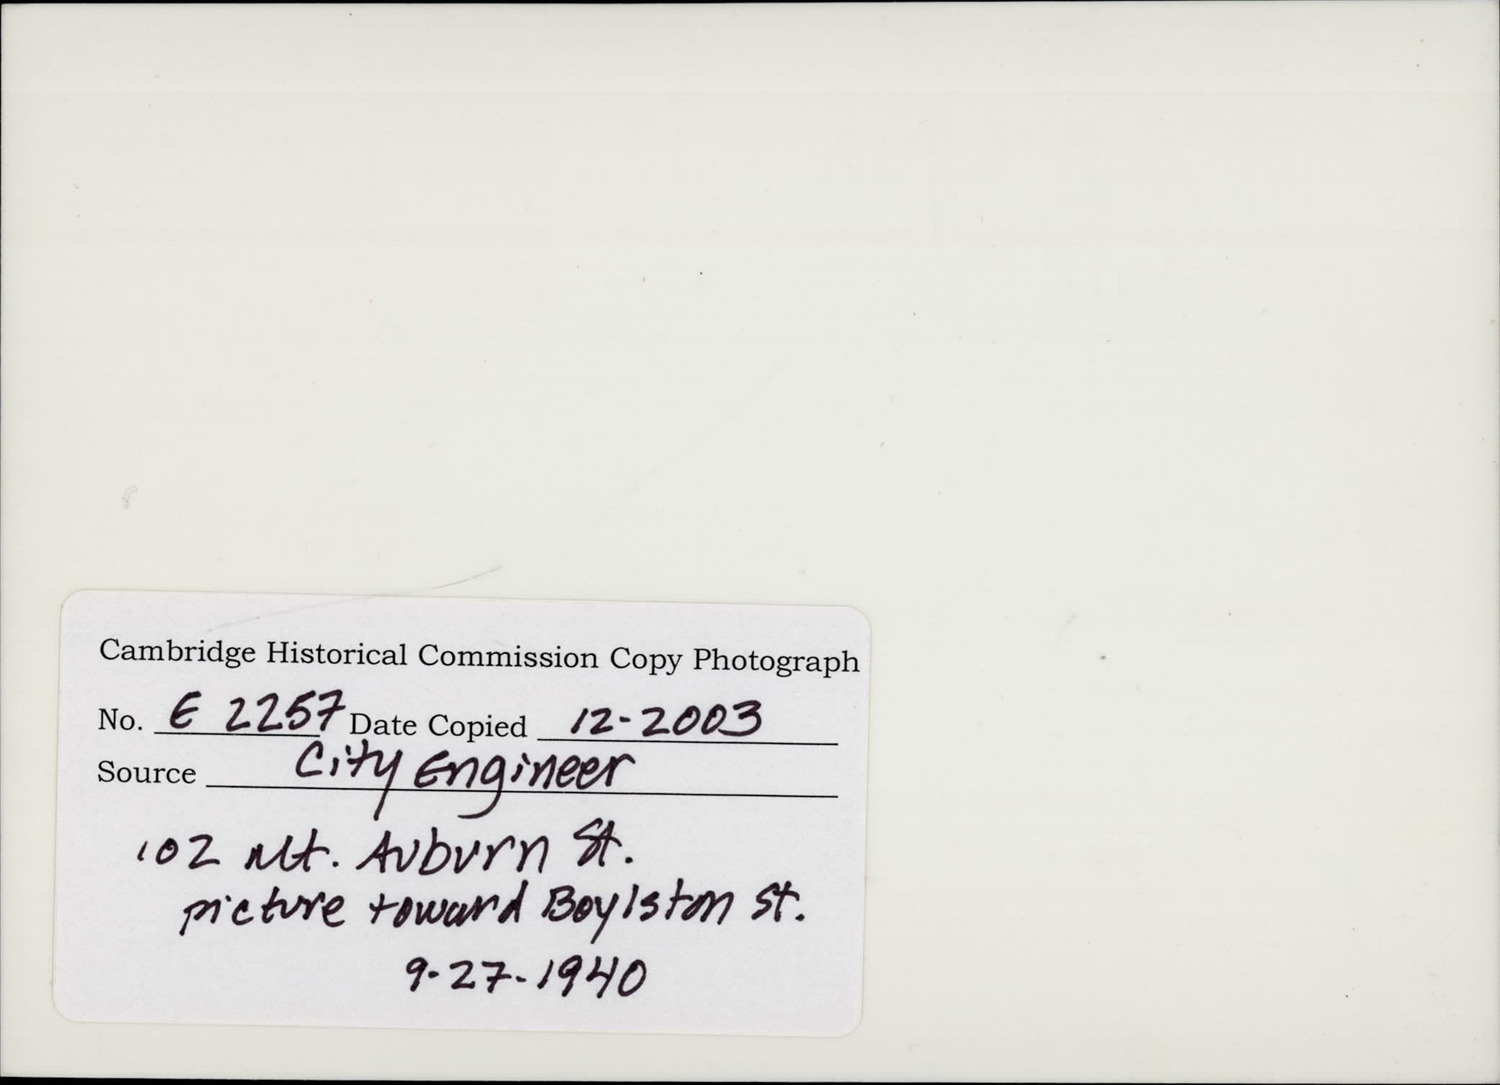 Cambridge Historical Commission Copy Photograph
No. E 2257 Date Copied 12-2003
Source City Engineer
102 Mt. Auburn St.
picture toward Boylston St.
9-27-1940